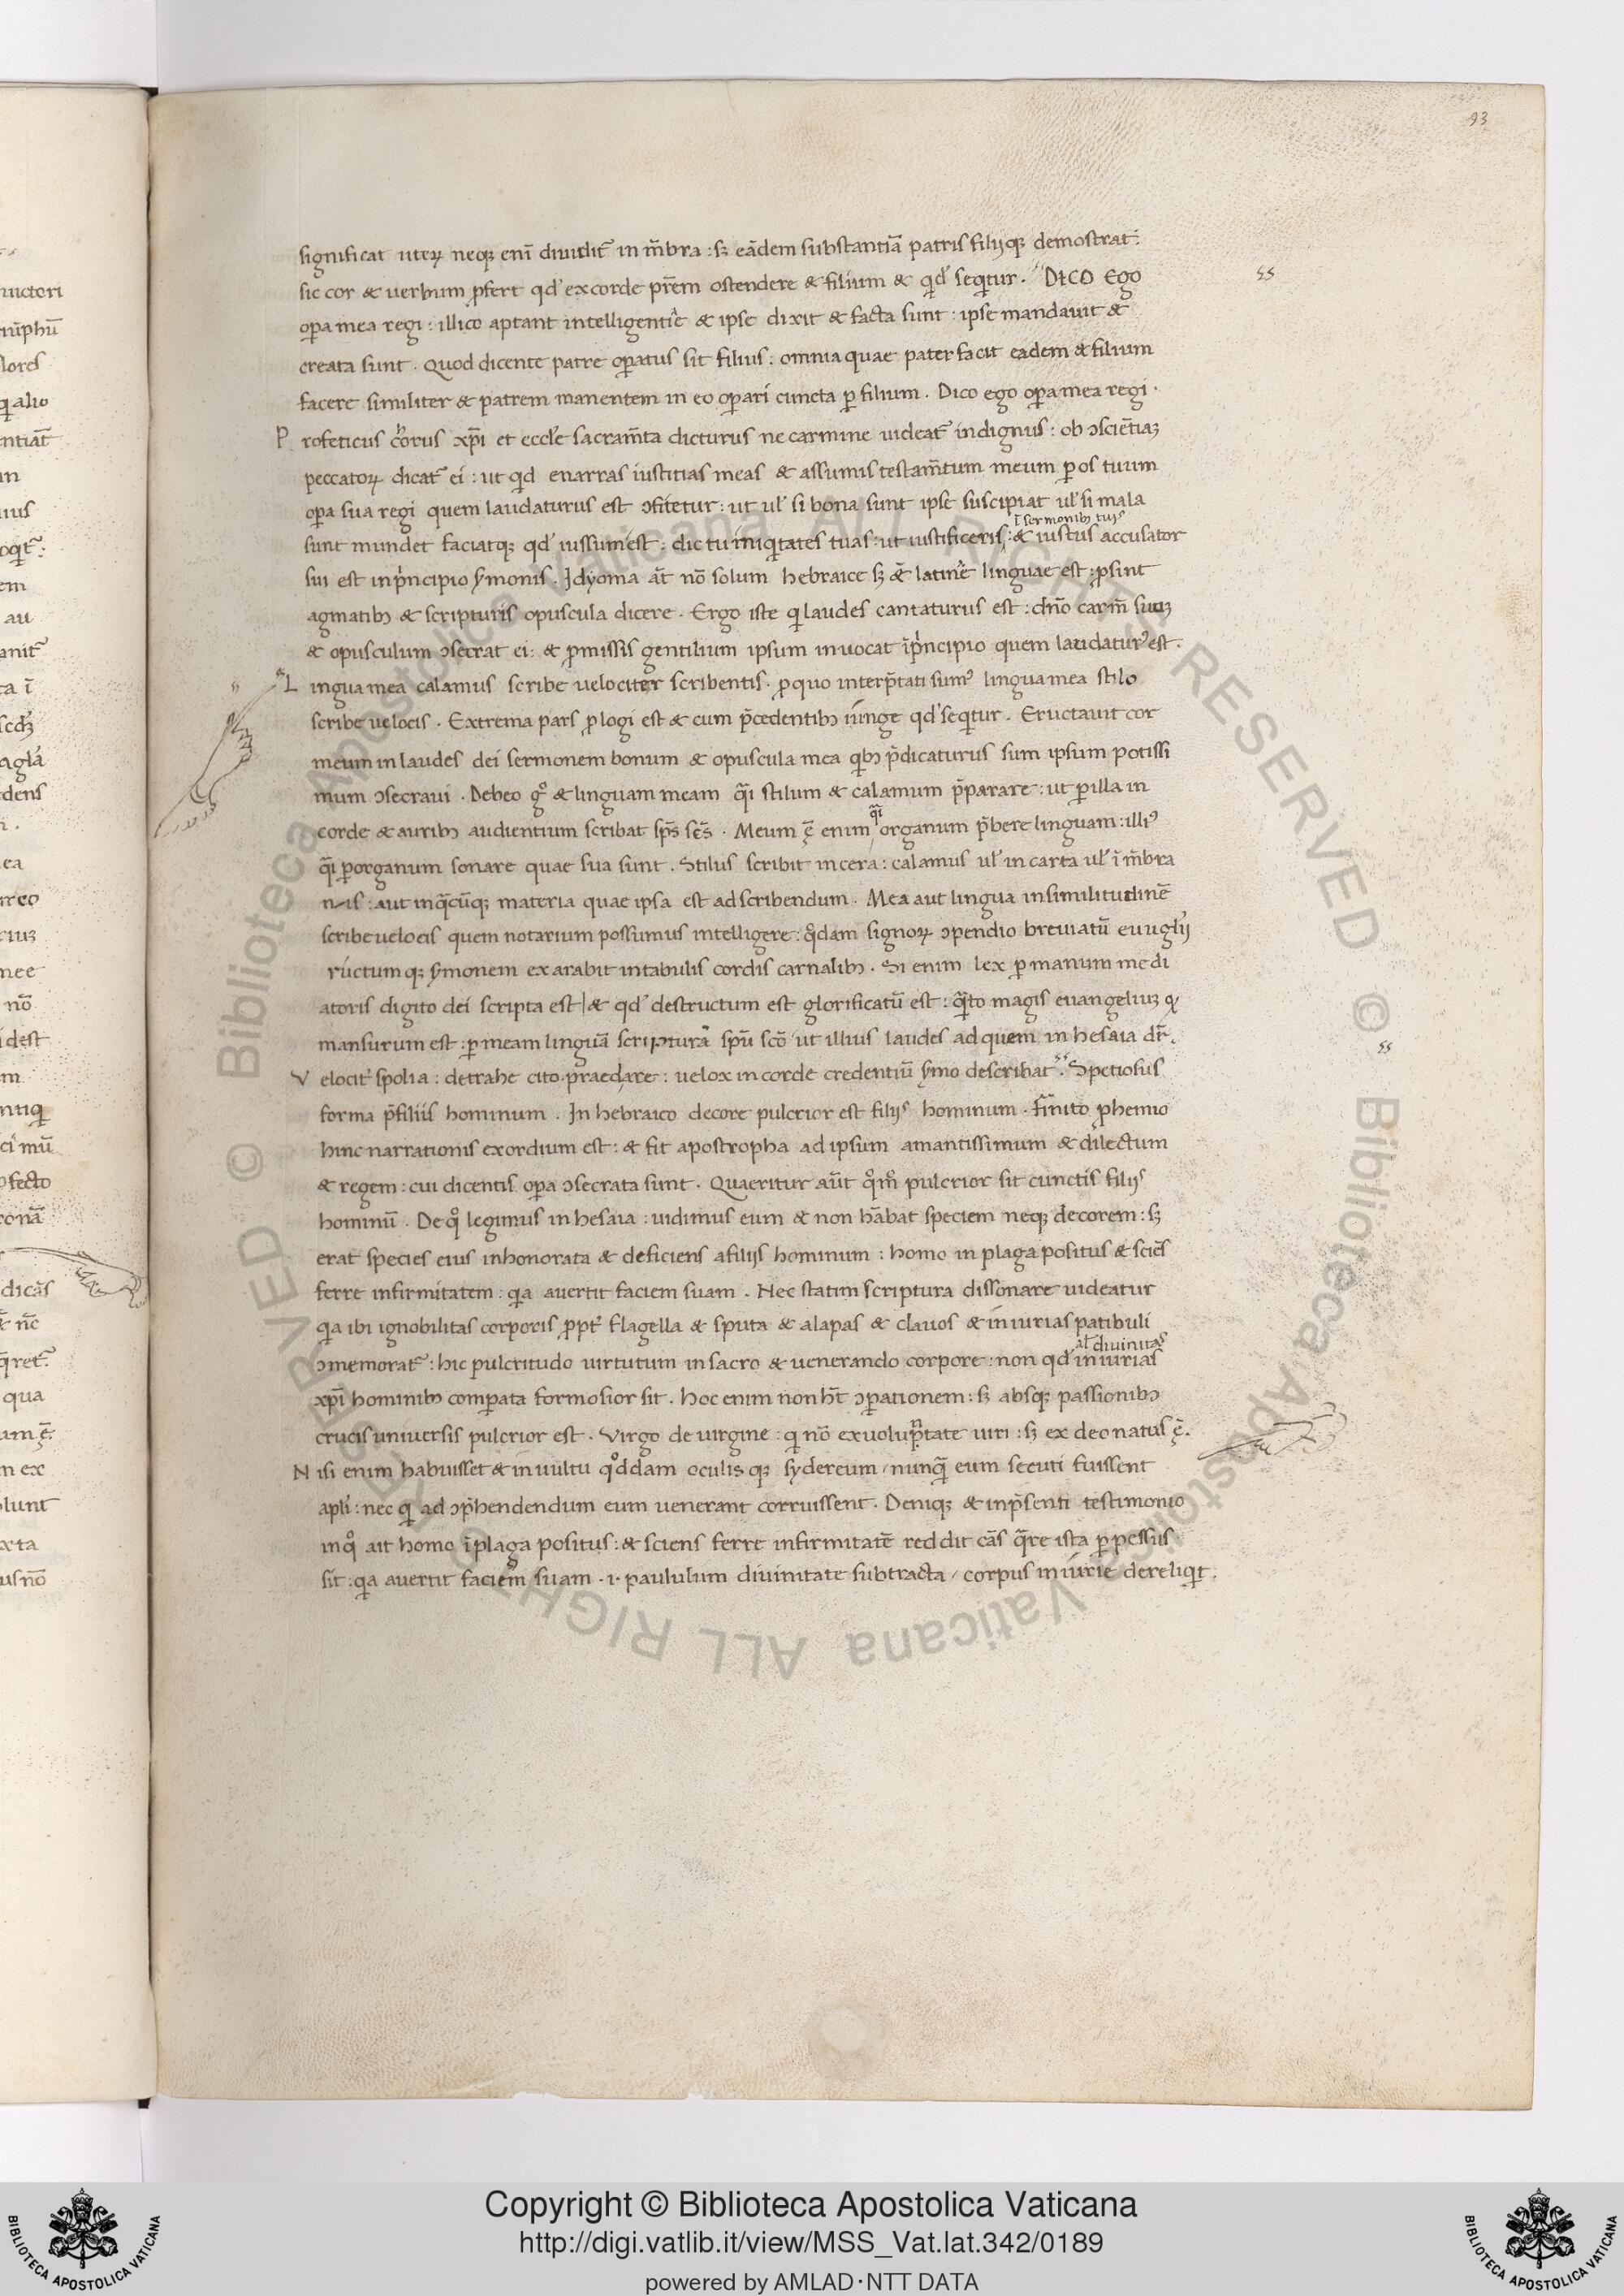 93
significat uterꝝ neqꝫ eni͂ diuidit᷑ in m̄bra : sꝫ eādem substantiā patris filijqꝫ demostrat᷑.
sic cor & uerbum ꝓfert qd᷎ ex corde p̄rem ostendere & filium & qͥd seqͥtur. DICO Ego
oꝑa mea regi : illico aptant intelligentię & ipse dixit & facta sunt : ipse mandauit &
creata sunt . Quod dicente patre oꝑatus sit filius : omnia quae pater facit eadem & filium
facere similiter & patrem manentem in eo oꝑari cuncta ꝑ filium . Dico ego oꝑa mea regi .
Profeticus cͪorus xp̄i et eccl̄e sacram̄ta dicturus ne carmine uideat᷑ indignus : ob ꝯsciētiaꝫ
peccatoꝝ dicat᷑ ei : ut qͥd enarras iustitias meas & assumis testam̄tum meum ꝑ os tuum
oꝑa sua regi quem laudaturus est ꝯfitetur : ut ul̓ si bona sunt ipse suscipiat ul̓ si mala
ī sermonibꝫ tuis
sunt mundet faciatqꝫ qd᷎ iussum est : dic tu iniqͥtates tuas : ut iustificeris : & iustus accusator
sui est in pͥncipio s̄monis . Idyoma aūt nō solum hebraice sꝫ & latinę linguae est : ꝓ sint
agmatibꝫ & scripturis opuscula dicere . Ergo iste qͥ laudes cantaturus est : dn̄o carm̄ suuꝫ
& opusculum ꝯsecrat ei : & p̄missis gentilium ipsum inuocat ī pͥncipio quem laudaturꝰ est .
Lingua mea calamus scribe uelociter scribentis . ꝓ quo interp̄tati sumꝰ lingua mea stilo
scribe uelocis . Extrema pars ꝓlogi est & cum p̄cedentibꝫ iunge qd᷎ seqͥtur . Eructauit cor
meum in laudes dei sermonem bonum & opuscula mea qͥbꝫ p̄dicaturus sum ipsum potissi
mum ꝯsecraui . Debeo gͦ & linguam meam qᷓi stilum & calamum p̄parare : ut ꝑ illa in
qᷓi
corde & auribꝫ audientium scribat sp̄s sc̄s . Meum ē enim organum p̄bere linguam : illiꝰ
qᷓi ꝑ organum sonare quae sua sunt . Stilus scribit in cera : calamus ul̓ in carta ul̓ ī m̄bra
nis : aut in qͣcūqꝫ materia quae ipsa est ad scribendum . Mea aut lingua in similitudinē
scribe uelocis quem notarium possumus intelligere : qͦdam signoꝝ ꝯpendio breuiatū euuglij
ructumqꝫ s̄monem exarabit in tabulis cordis carnalibꝫ . Si enim lex ꝑ manum medi
atoris digito dei scripta est & qd᷎ destructum est glorificatū est : qͣto magis euangeliuꝫ qͩ
mansurum est : ꝑ meam linguā scripturᷓ spū scō ut illius laudes ad quem in hesaia dr̄ .
Velocit᷑ spolia : detrahe cito praedare : uelox in corde credentiū s̄mo describat . Spetiosus
forma p̄ filiis hominum . In hebraico decore pulcrior est filijs hominum . Finito ꝓhemio
hinc narrationis exordium est : & fit apostropha ad ipsum amantissimum & dilectum
& regem : cui dicentis oꝑa ꝯsecrata sunt . Quaeritur aūt qͦmͦ pulcrior sit cunctis filijs
hominū . De qͦ legimus in hesaia : uidimus eum & non hābat speciem neqꝫ decorem : sꝫ
erat species eius inhonorata & deficiens a filijs hominum : homo in plaga positus & sciēs
ferre infirmitatem : qͥa auertit faciem suam . Nec statim scriptura dissonare uideatur
qͥa ibi ignobilitas corporis ꝓpt᷑ flagella & sputa & alapas & clauos & iniurias patibuli
al̓ diuinitas
ꝯmemorat᷑ : hic pulcritudo uirtutum in sacro & uenerando corpore : non qd᷎ iniurias
xp̄i hominibꝫ comꝑata formosior sit . hoc enim non hn̄t ꝯꝑationem : sꝫ absqꝫ passionibꝫ
crucis uniuersis pulcrior est . Virgo de uirgine : qͥ nō ex uoluptate uiri : sꝫ ex deo natus ē .
Nisi enim habuisset & in uultu qͦddam oculisqꝫ sydereum / nunqͣ̄ eum secuti fuissent
apl̓i : nec qͥ ad ꝯp̄hendendum eum uenerant corruissent . Deniqꝫ & in p̄senti testimonio
in qͦ ait homo ī plaga positus : & sciens ferre infirmitatē reddit cās qͣre ista ꝑpessus
sit : qͥa auertit faciem suam .i. paululum diuinitate subtracta / corpus iniurię dereliqͥt .
© Biblioteca Apostolica Vaticana ALL RIGHTS RESERVED © Biblioteca Apostolica Vaticana ALL RIGHTS RESERVED
Copyright © Biblioteca Apostolica Vaticana
http://digi.vatlib.it/view/MSS_Vat.lat.342/0189
powered by AMLAD·NTT DATA
BIBLIOTECA APOSTOLICA VATICANA
BIBLIOTECA APOSTOLICA VATICANA